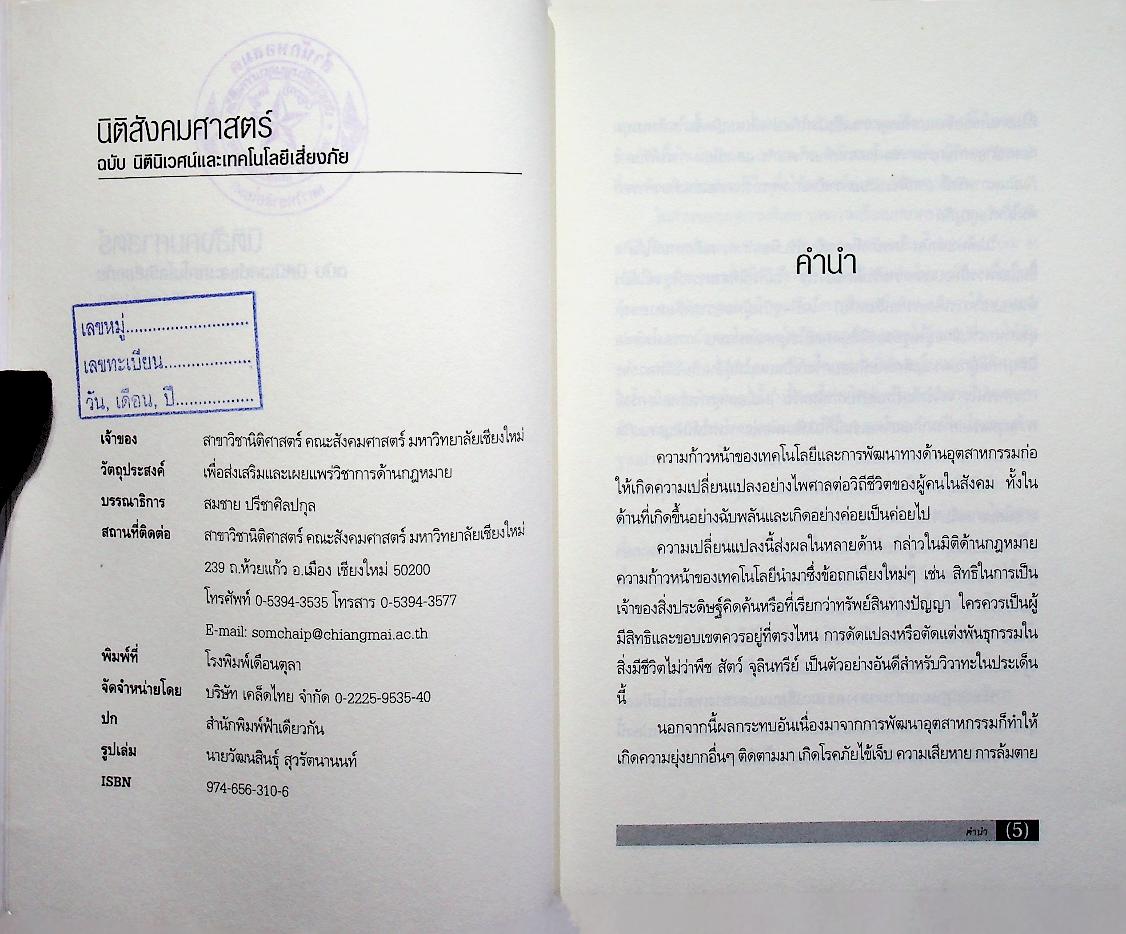 นิติสังคมศาสตร์
ฉบับ นิตินิเวศน์และเทคโนโลยีเสี่ยงภัย
เลขหมู่...........................
เลขทะเบียน...................
วัน, เดือน, ปี.................
เจ้าของ สาขาวิชานิติศาสตร์ คณะสังคมศาสตร์ มหาวิทยาลัยเชียงใหม่
วัตถุประสงค์ เพื่อส่งเสริมและเผยแพร่วิชาการด้านกฎหมาย
บรรณาธิการ สมชาย ปรีชาศิลปกุล
สถานที่ติดต่อ สาขาวิชานิติศาสตร์ คณะสังคมศาสตร์ มหาวิทยาลัยเชียงใหม่
239 ถ.ห้วยแก้ว อ.เมือง เชียงใหม่ 50200
โทรศัพท์ 0-5394-3535 โทรสาร 0-5394-3577
E-mail: somchaip@chiangmai.ac.th
พิมพ์ที่ โรงพิมพ์เดือนตุลา
จัดจำหน่ายโดย บริษัท เคล็ดไทย จำกัด 0-2225-9535-40
ปก สำนักพิมพ์ฟ้าเดียวกัน
รูปเล่ม นายวัฒนสินธุ์ สุวรัตนานนท์
ISBN 974-656-310-6
คำนำ
ความก้าวหน้าของเทคโนโลยีและการพัฒนาทางด้านอุตสาหกรรมก่อ
ให้เกิดความเปลี่ยนแปลงอย่างไพศาลต่อวิถีชีวิตของผู้คนในสังคม ทั้งใน
ด้านที่เกิดขึ้นอย่างฉับพลันและเกิดอย่างค่อยเป็นค่อยไป
ความเปลี่ยนแปลงนี้ส่งผลในหลายด้าน กล่าวในมิติด้านกฎหมาย
ความก้าวหน้าของเทคโนโลยีนำมาซึ่งข้อถกเถียงใหม่ๆ เช่น สิทธิในการเป็น
เจ้าของสิ่งประดิษฐ์คิดค้นหรือที่เรียกว่าทรัพย์สินทางปัญญา ใครควรเป็นผู้
มีสิทธิและขอบเขตควรอยู่ที่ตรงไหน การดัดแปลงหรือตัดแต่งพันธุกรรมใน
สิ่งมีชีวิตไม่ว่าพืช สัตว์ จุลินทรีย์ เป็นตัวอย่างอันดีสำหรับวิวาทะในประเด็น
นี้
นอกจากนี้ผลกระทบอันเนื่องมาจากการพัฒนาอุตสาหกรรมก็ทำให้
เกิดความยุ่งยากอื่นๆ ติดตามมา เกิดโรคภัยไข้เจ็บ ความเสียหาย การล้มตาย
คำนำ (5)